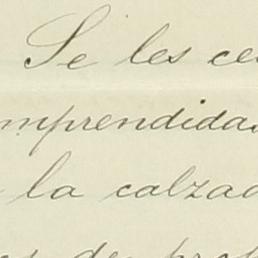 Se les ce
mprendidas
la calzad
de prof